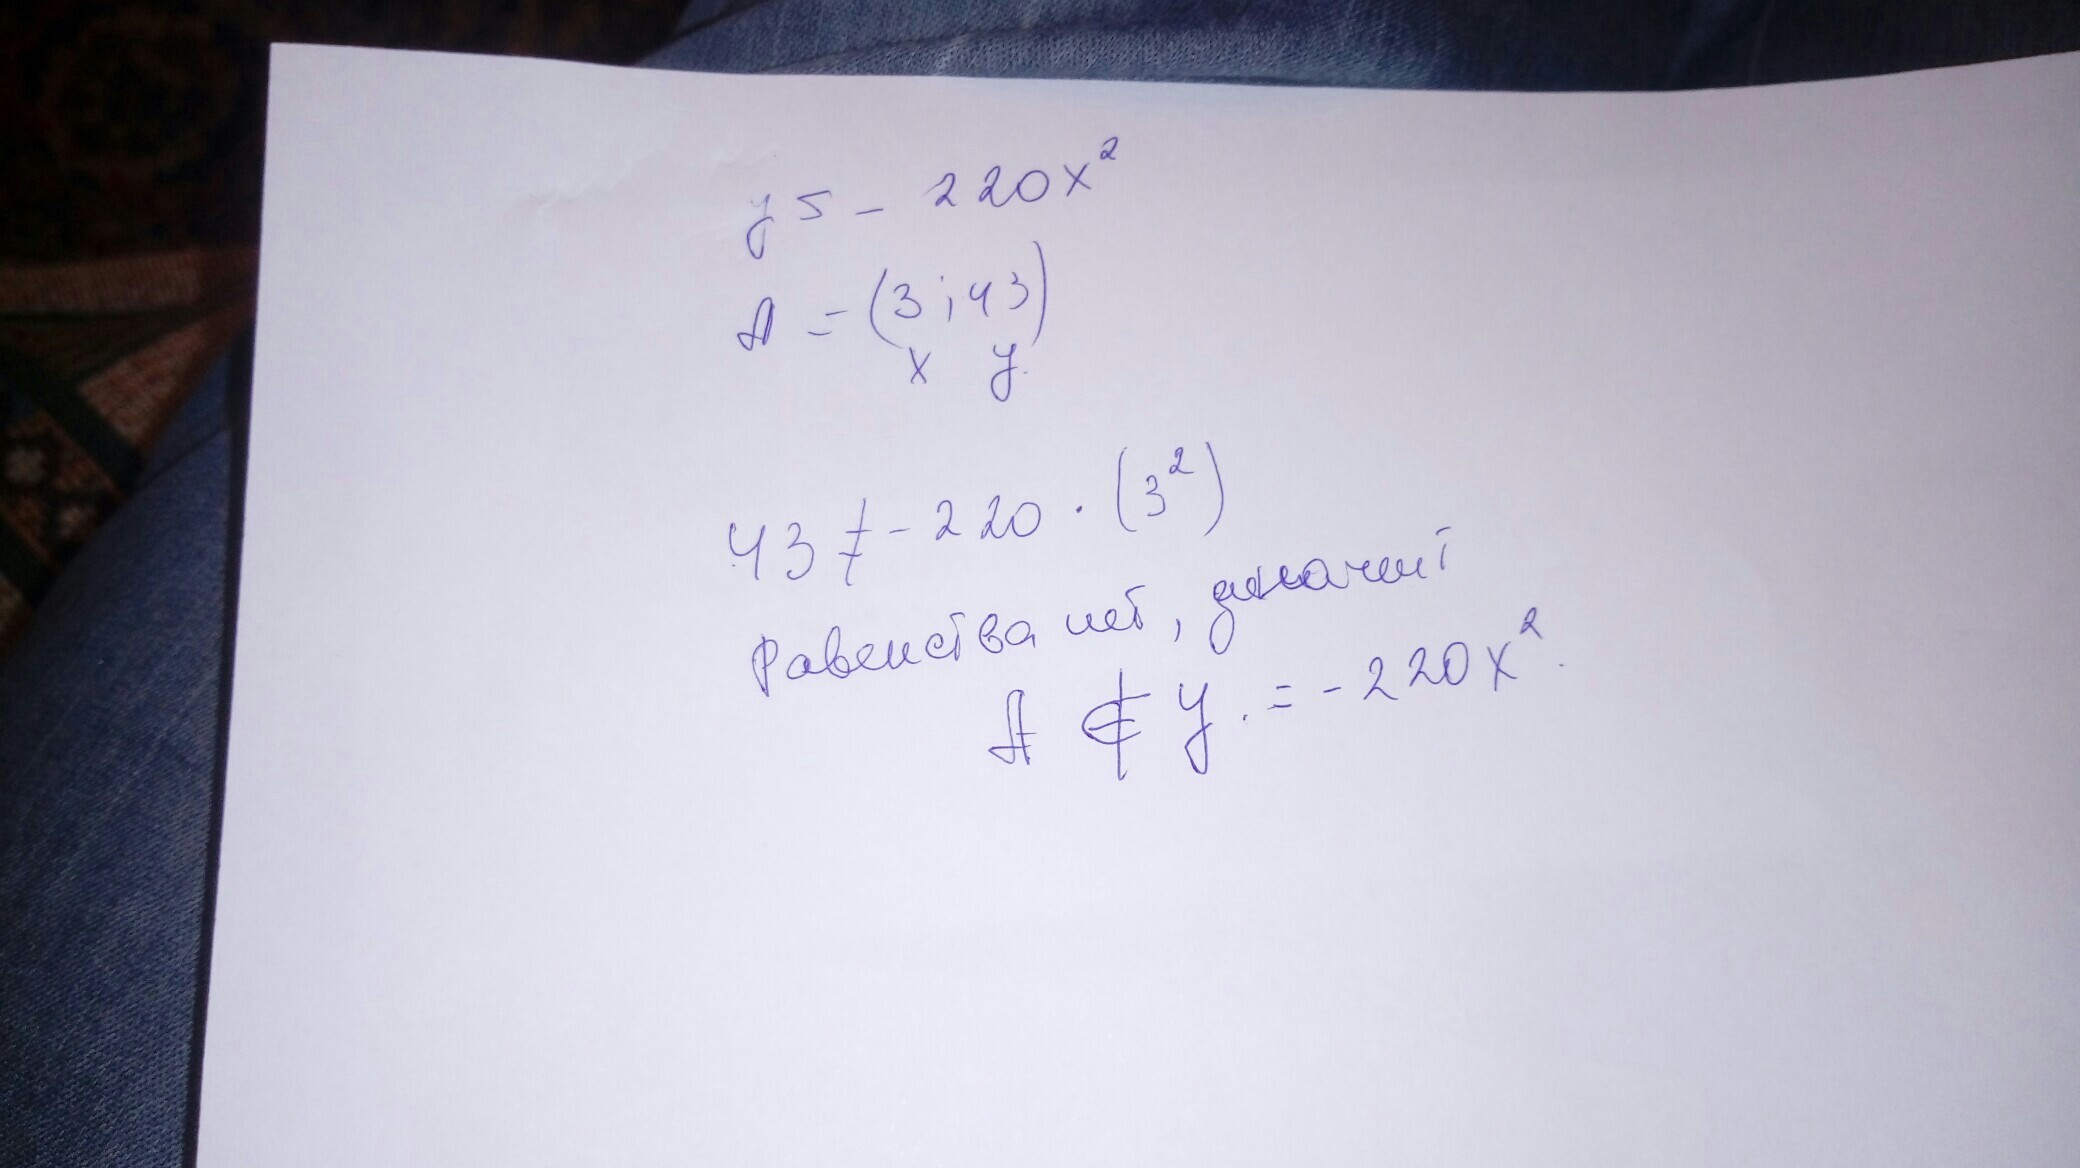 y = - 220x²
A = (3; 43)
x y
43 ≠ - 220 · (3²)
Равенства нет, значит
A ∉ y = - 220x².